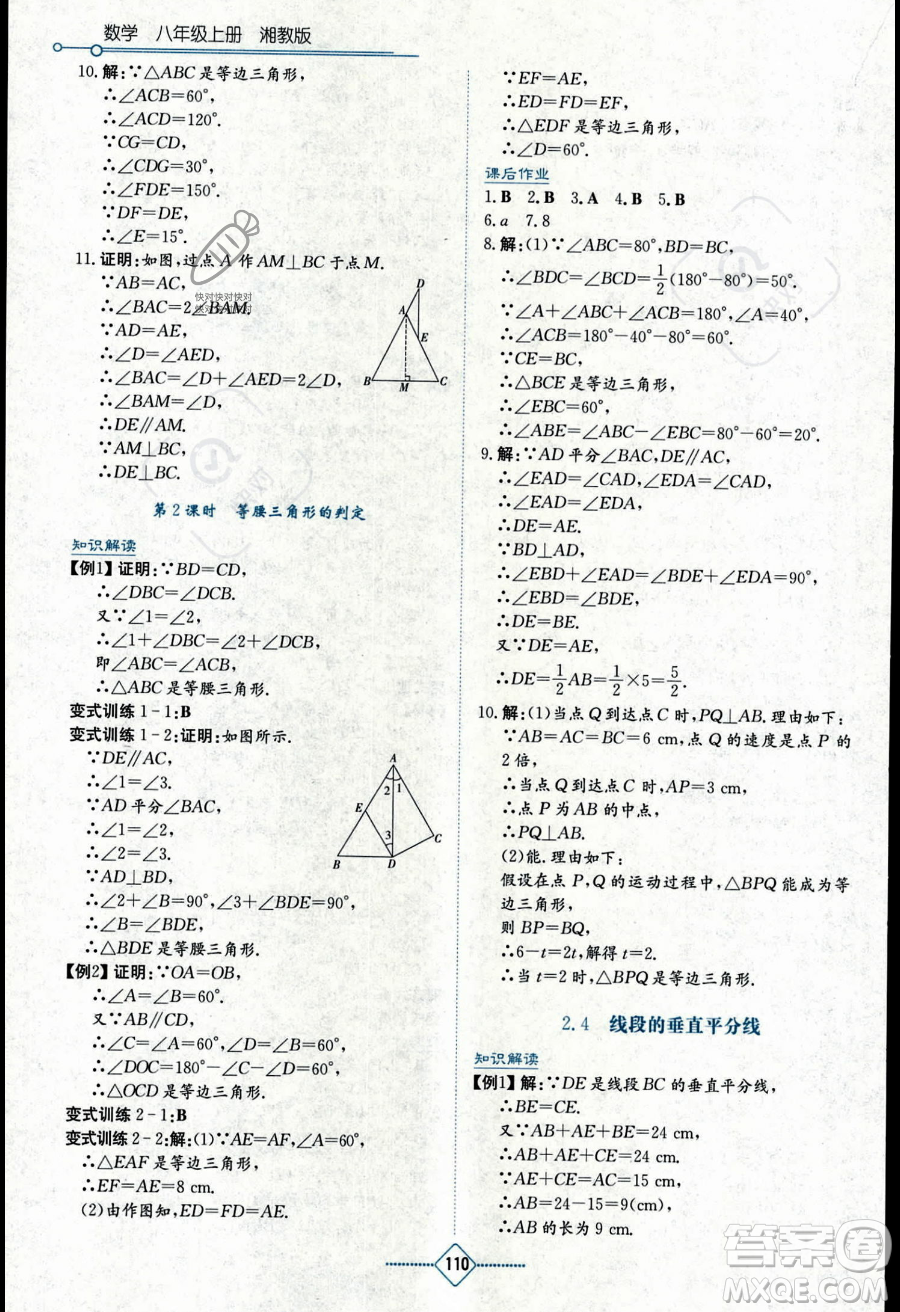 数学 八年级上册 湘教版
10. 解:∵△ABC是等边三角形,
∴∠ACB=60°,
∴∠ACD=120°.
∵CG=CD,
∴∠CDG=30°,
∴∠FDE=150°.
∵DF=DE,
∴∠E=15°.
11. 证明:如图,过点A作AM⊥BC于点M.
∵AB=AC,
∴∠BAC=2∠BAM.
∵AD=AE,
∴∠D=∠AED.
∴∠BAC=∠D+∠AED=2∠D,
∴∠BAM=∠D,
∴DE∥AM.
∵AM⊥BC,
∴DE⊥BC.
D
A
E
B M C
快对快对快对
快对快对快对
第2课时 等腰三角形的判定
知识解读
【例1】证明:∵BD=CD,
∴∠DBC=∠DCB.
又∵∠1=∠2,
∴∠1+∠DBC=∠2+∠DCB,
即∠ABC=∠ACB,
∴△ABC是等腰三角形.
变式训练1-1:B
变式训练1-2:证明:如图所示.
∵DE∥AC,
∴∠1=∠3.
∵AD平分∠BAC,
∴∠1=∠2,
∴∠2=∠3.
∵AD⊥BD,
∴∠2+∠B=90°,∠3+∠BDE=90°,
∴∠B=∠BDE,
∴△BDE是等腰三角形.
A
2 1
E
3 C
B D
【例2】证明:∵OA=OB,
∴∠A=∠B=60°.
又∵AB∥CD,
∴∠C=∠D=∠A=∠B=60°,
∴∠DOC=180°-∠C-∠D=60°,
∴△OCD是等边三角形.
变式训练2-1:B
变式训练2-2:解:(1)∵AE=AF,∠A=60°,
∴△EAF是等边三角形,
∴EF=AE=8 cm.
(2)由作图知,ED=FD=AE.
∵EF=AE,
∴ED=FD=EF,
∴△EDF是等边三角形,
∴∠D=60°.
课后作业
1. B 2. B 3. A 4. B 5. B
6. a 7. 8
8. 解:(1)∵∠ABC=80°,BD=BC,
∴∠BDC=∠BCD=1/2(180°-80°)=50°.
∵∠A+∠ABC+∠ACB=180°,∠A=40°,
∴∠ACB=180°-40°-80°=60°.
∵CE=BC,
∴△BCE是等边三角形,
∴∠EBC=60°,
∴∠ABE=∠ABC-∠EBC=80°-60°=20°.
9. 解:∵AD平分∠BAC,DE∥AC,
∴∠EAD=∠CAD,∠EDA=∠CAD,
∴∠EAD=∠EDA,
∴DE=AE.
∵BD⊥AD,
∴∠EBD+∠EAD=∠BDE+∠EDA=90°,
∴∠EBD=∠BDE,
∴DE=BE.
又∵DE=AE,
∴DE=1/2AB=1/2×5=5/2.
10. 解:(1)当点Q到达点C时,PQ⊥AB.理由如下:
∵AB=AC=BC=6 cm,点Q的速度是点P的
2倍,
∴当点Q到达点C时,AP=3 cm,
∴点P为AB的中点,
∴PQ⊥AB.
(2)能.理由如下:
假设在点P,Q的运动过程中,△BPQ能成为等
腰三角形,
则BP=BQ,
∴6-t=2t,解得t=2.
∴当t=2时,△BPQ是等腰三角形.
2.4 线段的垂直平分线
知识解读
【例1】解:∵DE是线段BC的垂直平分线,
∴BE=CE.
又∵AB+AE+BE=24 cm,
∴AB+AE+CE=24 cm,
∴AB+AC=24 cm,
∴AB=24-15=9(cm),
∴AB的长为9 cm.
110
答案圈
MXQE.COM